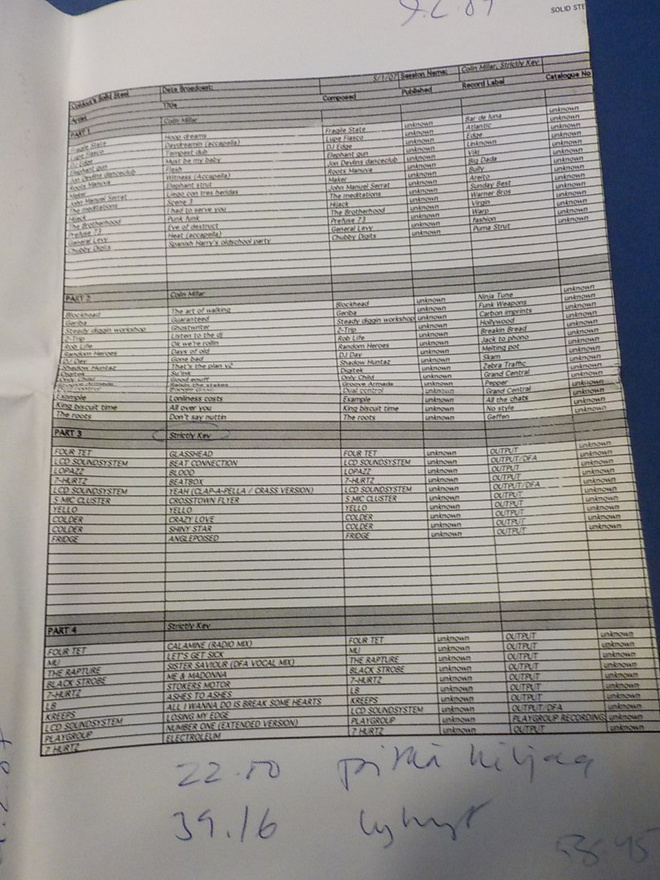 9.2.07
SOLID STE
Coldcut's Solid Steel Date Broadcast: 5/1/07 Session Name: Colin Millar, Strictly Kev
Artist Title Composed Published Record Label Catalogue No
PART 1 Colin Millar
Fragile State Hoop dreams Fragile State unknown Bar de luna unknown
Lupe Fiasco Daydreamin (accapella) Lupe Fiasco unknown Atlantic unknown
DJ Edge Tempest dub DJ Edge unknown Edge unknown
Elephant gun Must be my baby Elephant gun unknown Unknown unknown
Jon Devlins danceclub Flesh Jon Devlins danceclub unknown Viki unknown
Roots Manuva Witness (Accapella) Roots Manuva unknown Big Dada unknown
Maker Elephant strut Maker unknown Bully unknown
John Manuel Serrat Llego con tres heridas John Manuel Serrat unknown Areito unknown
The meditations Scene 3 The meditations unknown Sunday Best unknown
Hijack I had to serve you Hijack unknown Warner Bros unknown
The Brotherhood Punk funk The Brotherhood unknown Virgin unknown
Prefuse 73 Eve of destruct Prefuse 73 unknown Warp unknown
General Levy Heat (accapella) General Levy unknown Fashion unknown
Chubby Digits Spanish Harry's oldschool party Chubby Digits unknown Puma Strut unknown
PART 2 Colin Millar
Blockhead The art of walking Blockhead unknown Ninja Tune unknown
Geriba Guaranteed Geriba unknown Funk Weapons unknown
Steady diggin workshop Ghostwriter Steady diggin workshop unknown Carbon imprints unknown
Z-Trip Listen to the dj Z-Trip unknown Hollywood unknown
Rob Life Ok we're rollin Rob Life unknown Breakin Bread unknown
Random Heroes Days of old Random Heroes unknown Jack to phono unknown
DJ Day Gone bad DJ Day unknown Melting pot unknown
Shadow Huntaz That's the plan v2 Shadow Huntaz unknown Skam unknown
Digitek Digitek unknown Zebra Traffic unknown
Only Child Only Child unknown Grand Central unknown
Groove Armada unknown Pepper unknown
unknown Grand Central unknown
Example Lonliness costs Example unknown All the chats unknown
King biscuit time All over you King biscuit time unknown No style unknown
The roots Don't say nuttin The roots unknown Geffen unknown
PART 3 Strictly Kev
FOUR TET GLASSHEAD FOUR TET unknown OUTPUT unknown
LCD SOUNDSYSTEM BEAT CONNECTION LCD SOUNDSYSTEM unknown OUTPUT/DFA unknown
LOPAZZ BLOOD LOPAZZ unknown OUTPUT unknown
7-HURTZ BEATBOX 7-HURTZ unknown OUTPUT unknown
LCD SOUNDSYSTEM YEAH (CLAP-A-PELLA / CRASS VERSION) LCD SOUNDSYSTEM unknown OUTPUT/DFA unknown
5 MIC CLUSTER CROSSTOWN FLYER 5 MIC CLUSTER unknown OUTPUT unknown
YELLO YELLO YELLO unknown OUTPUT unknown
COLDER CRAZY LOVE COLDER unknown OUTPUT unknown
COLDER SHINY STAR COLDER unknown OUTPUT unknown
FRIDGE ANGLEPOISED FRIDGE unknown OUTPUT unknown
PART 4 Strictly Kev
FOUR TET CALAMINE (RADIO MIX) FOUR TET unknown OUTPUT unknown
MU LET'S GET SICK MU unknown OUTPUT unknown
THE RAPTURE SISTER SAVIOUR (DFA VOCAL MIX) THE RAPTURE unknown OUTPUT unknown
BLACK STROBE ME & MADONNA BLACK STROBE unknown OUTPUT unknown
7-HURTZ STOKERS MOTOR 7-HURTZ unknown OUTPUT unknown
LB ASHES TO ASHES LB unknown OUTPUT unknown
KREEPS ALL I WANNA DO IS BREAK SOME HEARTS KREEPS unknown OUTPUT unknown
LCD SOUNDSYSTEM LOSING MY EDGE LCD SOUNDSYSTEM unknown OUTPUT/DFA unknown
PLAYGROUP NUMBER ONE (EXTENDED VERSION) PLAYGROUP unknown PLAYGROUP RECORDINGS unknown
7 HURTZ ELECTROLEUM 7 HURTZ unknown OUTPUT unknown
22.00 pitkä
39.16 lyhyt
58.45